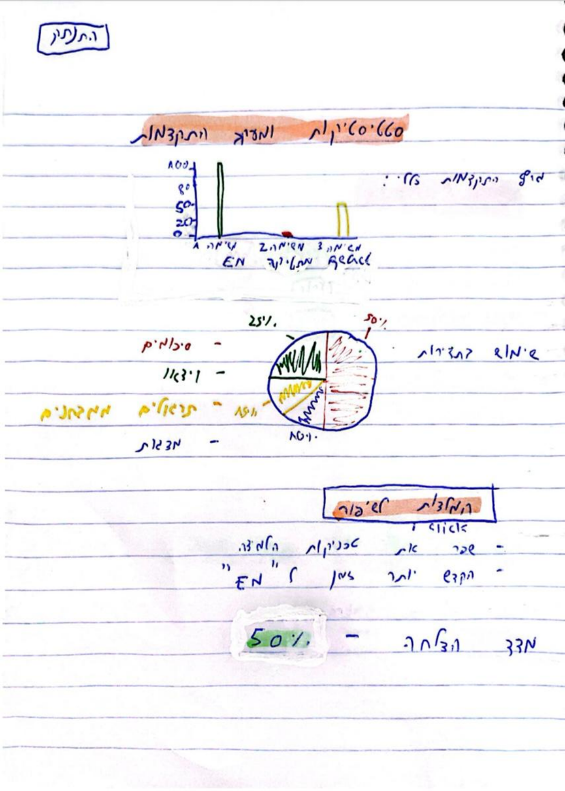 התנתק
סטטיסטיקות ומעקב התקדמות
גרף התקדמות כללי:
100
80
50
20
0
משימה 1 משימה 2 משימה 3
EM מתטיקה
שימוש בתדירות
50%
25%
15%
10%
סיכומים -
וידאו -
תרגולים ממבחנים -
מצגות -
המלצות לשיפור
- שפר את טכניקות הלמידה
- הקדש יותר זמן ל "EM"
מדד הצלחה - 50%